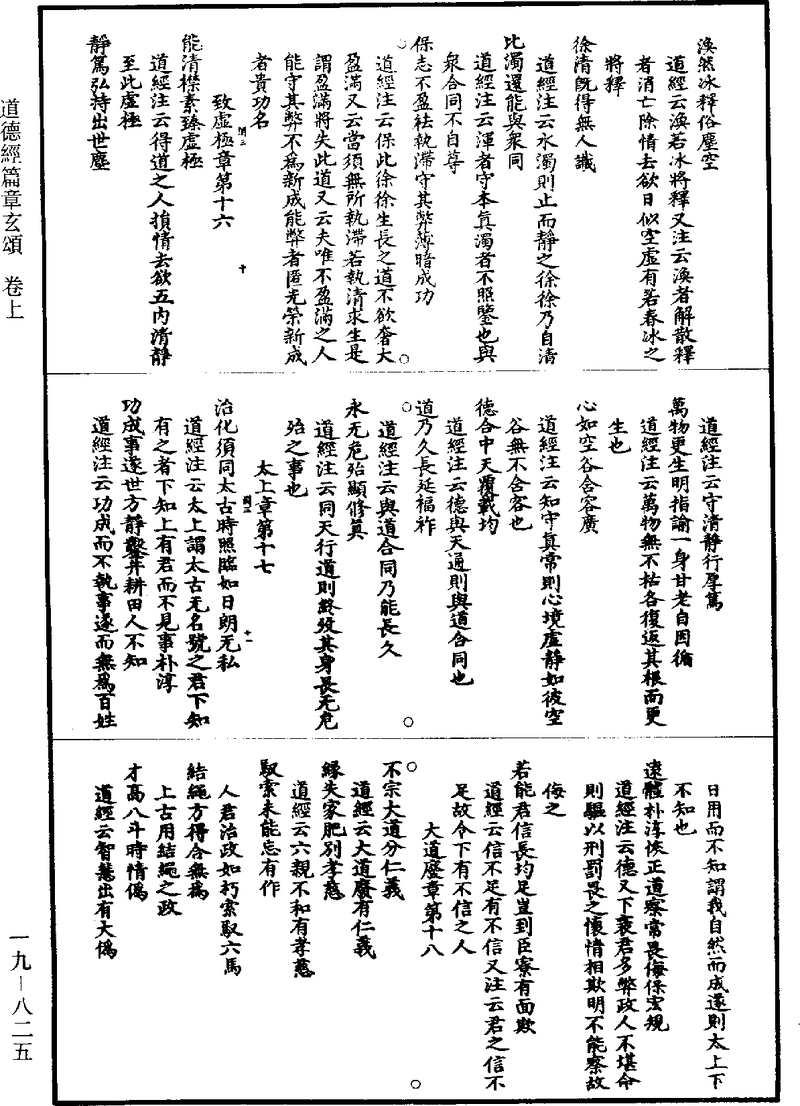 渙然冰釋俗塵空
道經云渙若冰將釋又注云渙者解散釋
者消亡除情去欲日似空虛有若春冰之
將釋
徐清旣得無人識
道經注云水濁則止而靜之徐徐乃自清
比濁還能與衆同
道經注云渾者守本真濁者不照鑒也與
衆合同不自尊
保志不盈袪執滯守其弊薄暗成功
道經注云保此徐徐生長之道不欲奢大
盈滿又云當須無所執滯若執清求生是
謂盈滿將失此道又云夫唯不盈滿之人
能守其弊不爲新成能弊者匿光榮新成
者貴功名
致虛極章第十六
能清襟素臻虛極
道經注云得道之人損情去欲五內清靜
至此虛極
靜篤弘持出世塵
道經注云守清靜行厚篤
萬物更生明指諭一身甘老自因循
道經注云萬物無不枯各復返其根而更
生也
心如空谷含容廣
道經注云知守真常則心境虛靜如彼空
谷無不含容也
德合中天覆載均
道經注云德與天通則與道合同也
道乃久長延福祚
道經注云與道合同乃能長久
永无危殆顯修真
道經注云同天行道則終歿其身長无危
殆之事也
太上章第十七
治化須同太古時照臨如日朗无私
道經注云太上謂太古无名號之君下知
有之者下知上有君而不見事朴淳
功成事遂世方靜鑿井耕田人不知
道經注云功成而不執事遂而無爲百姓
日用而不知謂我自然而成遂則太上下
不知也
遠體朴淳恢正道察常畏侮保宏規
道經注云德又下衰君多弊政人不堪命
則驅以刑罰畏之懷情相欺明不能察故
侮之
若能君信長均足豈到臣寮有面欺
道經云信不足有不信又注云君之信不
足故令下有不信之人
大道廢章第十八
不宗大道分仁義
道經云大道廢有仁義
緣失家肥別孝慈
道經云六親不和有孝慈
馭索未能忘有作
人君治政如朽索馭六馬
結繩方得合無爲
上古用結繩之政
才高八斗時情僞
道經云智慧出有大僞
道德經篇章玄頌　卷上
一九－八二五